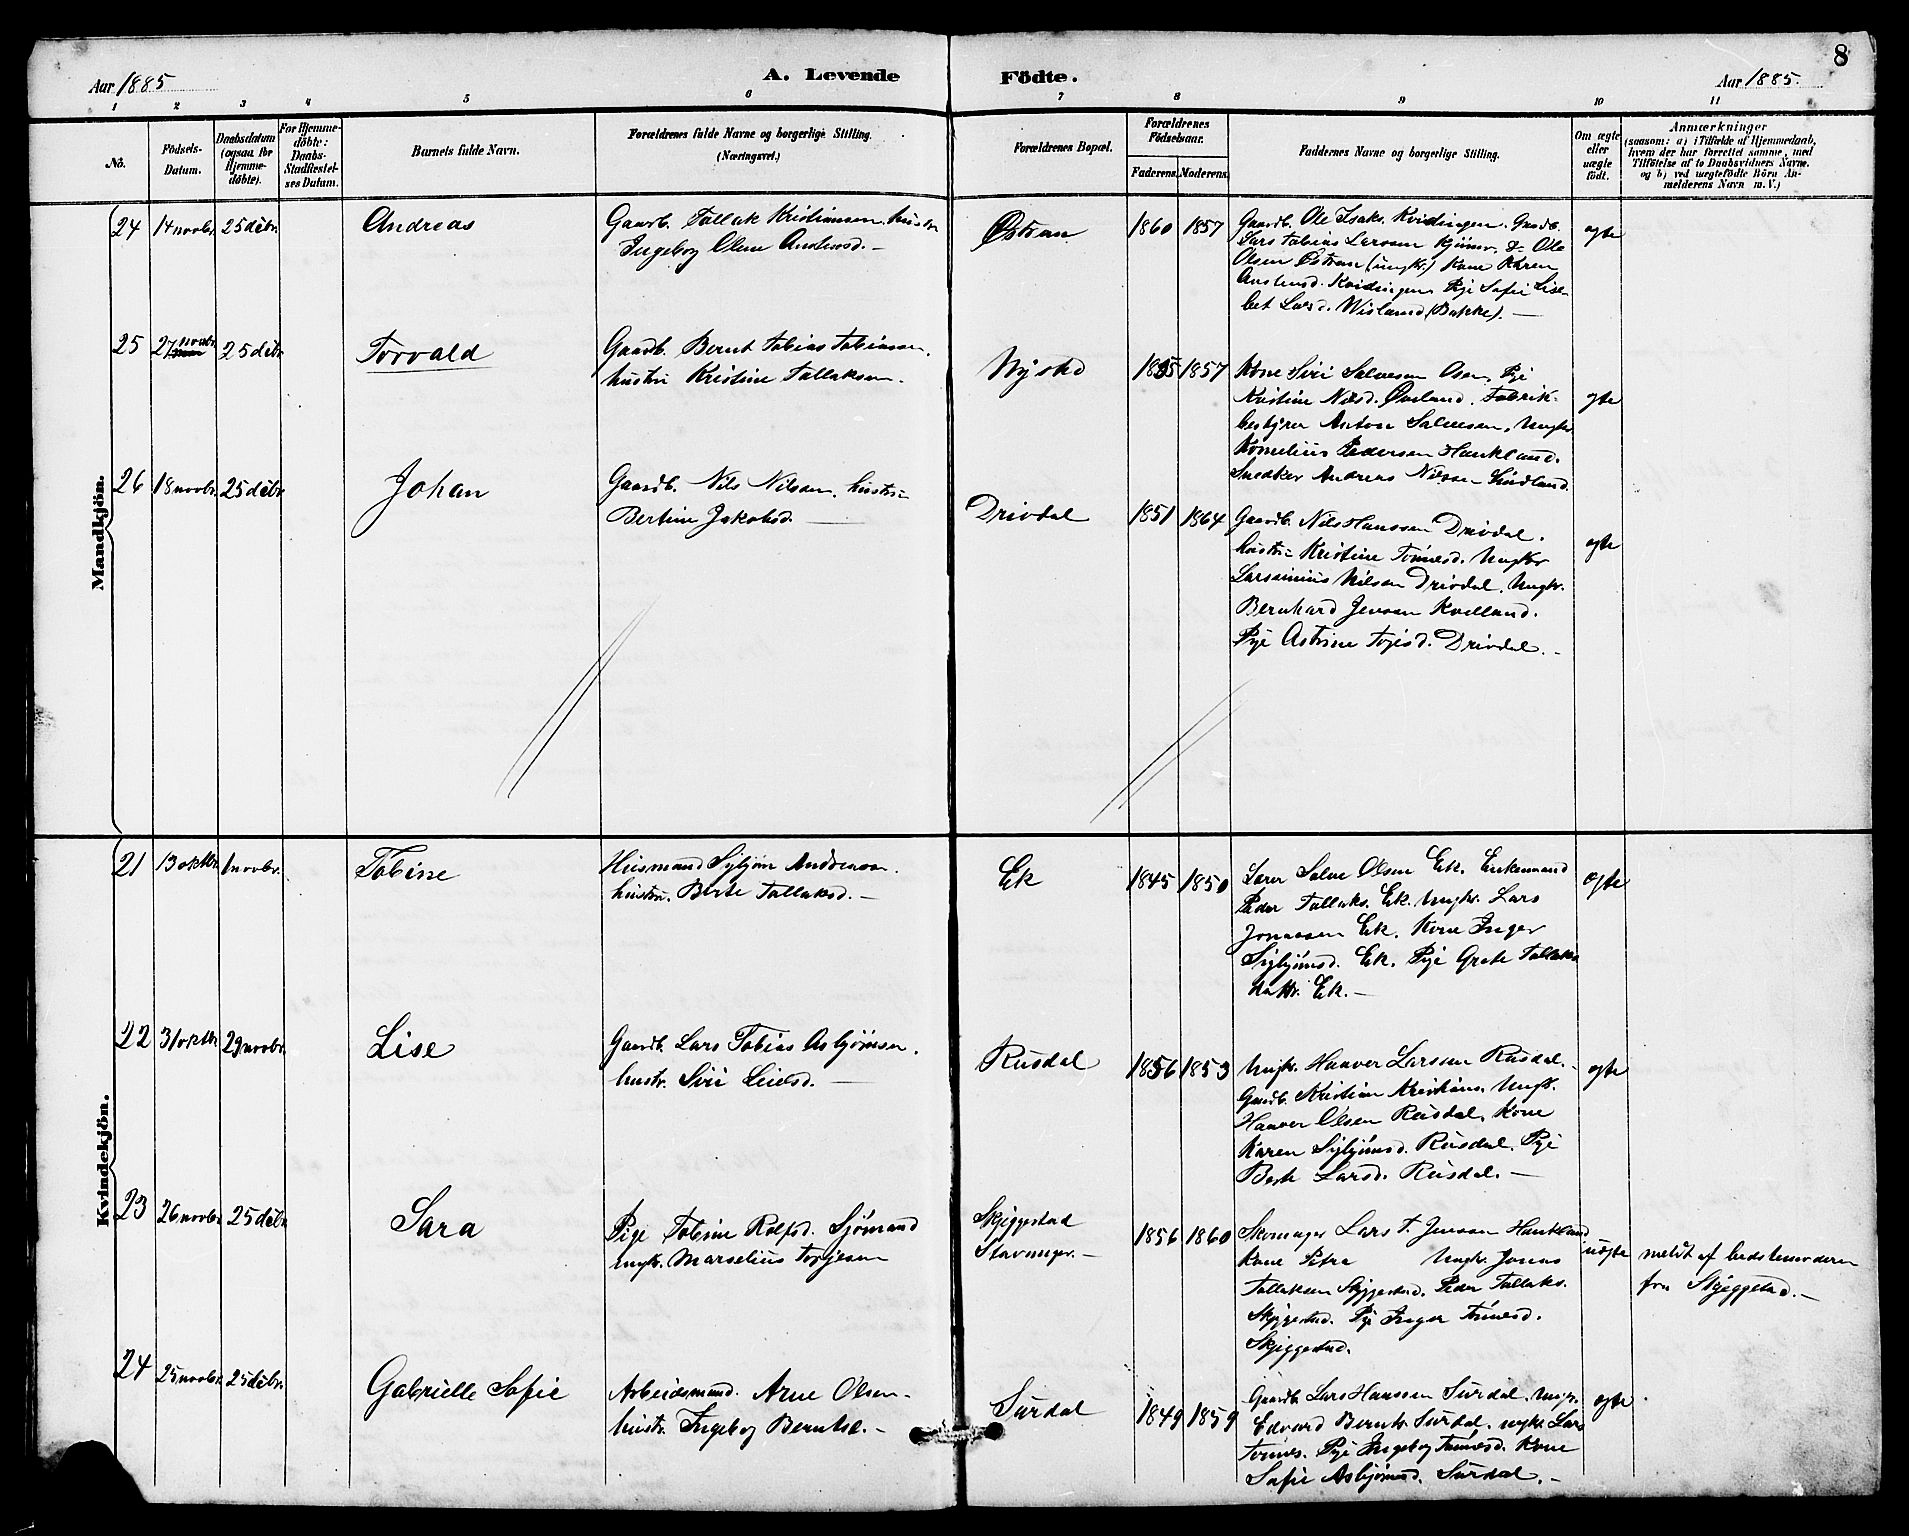 8
Aar 1885
A. Levende Födte.
Aar 1885.
1 2 3 4 5 6 7 8 9 10 11
No.
Födsels-
Datum.
Daabsdatum
(ogsaa for
Hjemme-
döbte).
For Hjemme-
döbte:
Daabs-
Stadfæstel-
ses Datum.
Barnets fulde Navn.
Forældrenes fulde Navne og borgerlige Stilling.
(Næringsvei.)
Forældrenes Bopæl.
Forældrenes
Födselsaar.
Faderens. Moderens.
Faddernes Navne og borgerlige Stilling.
Om ægte
eller
uægte
födt.
Anmærkninger
(saasom: a) i Tilfælde af Hjemmedaab,
hvem der har forrettet samme, med
Tilföielse af to Daabsvidners Navne,
og b) ved uægtefödte Börn An-
melderens Navn m. V.)
Mandkjön.
24 14 novbr. 25 debr. Andreas
Gaardb. Tallak Kristiansen. hustru
Ingeborg Olene Andersd. —
Østram
1860 1857
Gaardb. Ole Isaks. Kvidingen. Gaardb.
Lars Tobias Larsen
Olsen Østram (ungkr.) Kone Karen
Kvidingen Pige Sofie Lise-
bet Larsd. Wisland (Bakke). —
ægte
25 27 novbr. 25 debr. Torvald
Gaardb. Bernt Tobias Tobiassen.
hustru Kristine Tallaksen.
Nysted
1855 1857
Kone Siri Salvesen Osen, Pige
Kristine Nilsd. Øveland. Fabrik-
bestyrer Anton Salvesen, Ungkr.
Kornelius Pedersen Haukland.
Snedker Andreas Nilssen Lindland.
ægte
26 18 novbr. 25 debr. Johan
Gaardb. Nils Nilsen. hustru
Bertine Jakobsd. —
Drivdal
1851 1864
Gaardb. Nils Hanssen Drivdal.
hustru Kristine Tönnesd. Ungkr
Larsinius Nilsen Drivdal. Ungkr.
Bernhard Jensen Kvelland.
Pige Astrine Tojesd. Drivdal. —
ægte
Kvindekjön.
21 13 oktbr. 1 novbr. Tobine
Husmand Sigbjörn Andersen.
hustru. Berte Tallaksd. —
Ek
1845 1850
Lærer Salve Olsen Ek. Enkemand
Peder Tallaks. Ek. Ungkr. Lars
Jonassen Ek. Kone Inger
Sigbjörnsd. Ek. Pige Grete Tallaks
datter. Ek. —
ægte
22 31 oktbr. 29 novbr. Lise
Gaardb. Lars Tobias Asbjörnsen.
hustr. Siri Leiesd. —
Rusdal
1856 1853
Ungkr. Haaver Larsen Rusdal. -
Gaardb. Kristian Kristians. Ungk.
Haaver Olsen Rusdal, Kone
Karen Sigbjörnsd. Rusdal. Pige
Berte Larsd. Rusdal. —
ægte
23 26 novbr. 25 debr. Sara
Pige Tobine Rolfsd. Sjömand
Ungk. Marselius Torjesen
Skjeggestad
Stavanger. —
1856 1860
Skomager Lars T. Jensen Haukland
Kone Petra Ungkr Jonas
Tallaksen Skjeggestad. Peder Tallaks.
Skjeggestad. Pige Inger Tönnesd.
Skjeggestad.
uægte
meldt af bedstemoderen
fra Skjeggestad. —
24 25 novbr. 25 debr. Gabrielle Sofie
Arbeidsmand. Arne Olsen-
hustr. Ingeborg Berntsd. —
Surdal
1849 1859
Gaardb. Lars Hanssen Surdal. Ungkr.
Edvard Bernts. Surdal. ungkr. Lars
Tönnes. Pige Ingeborg Tönnesd. Kone
Sofie Asbjörnsd. Surdal. —
ægte